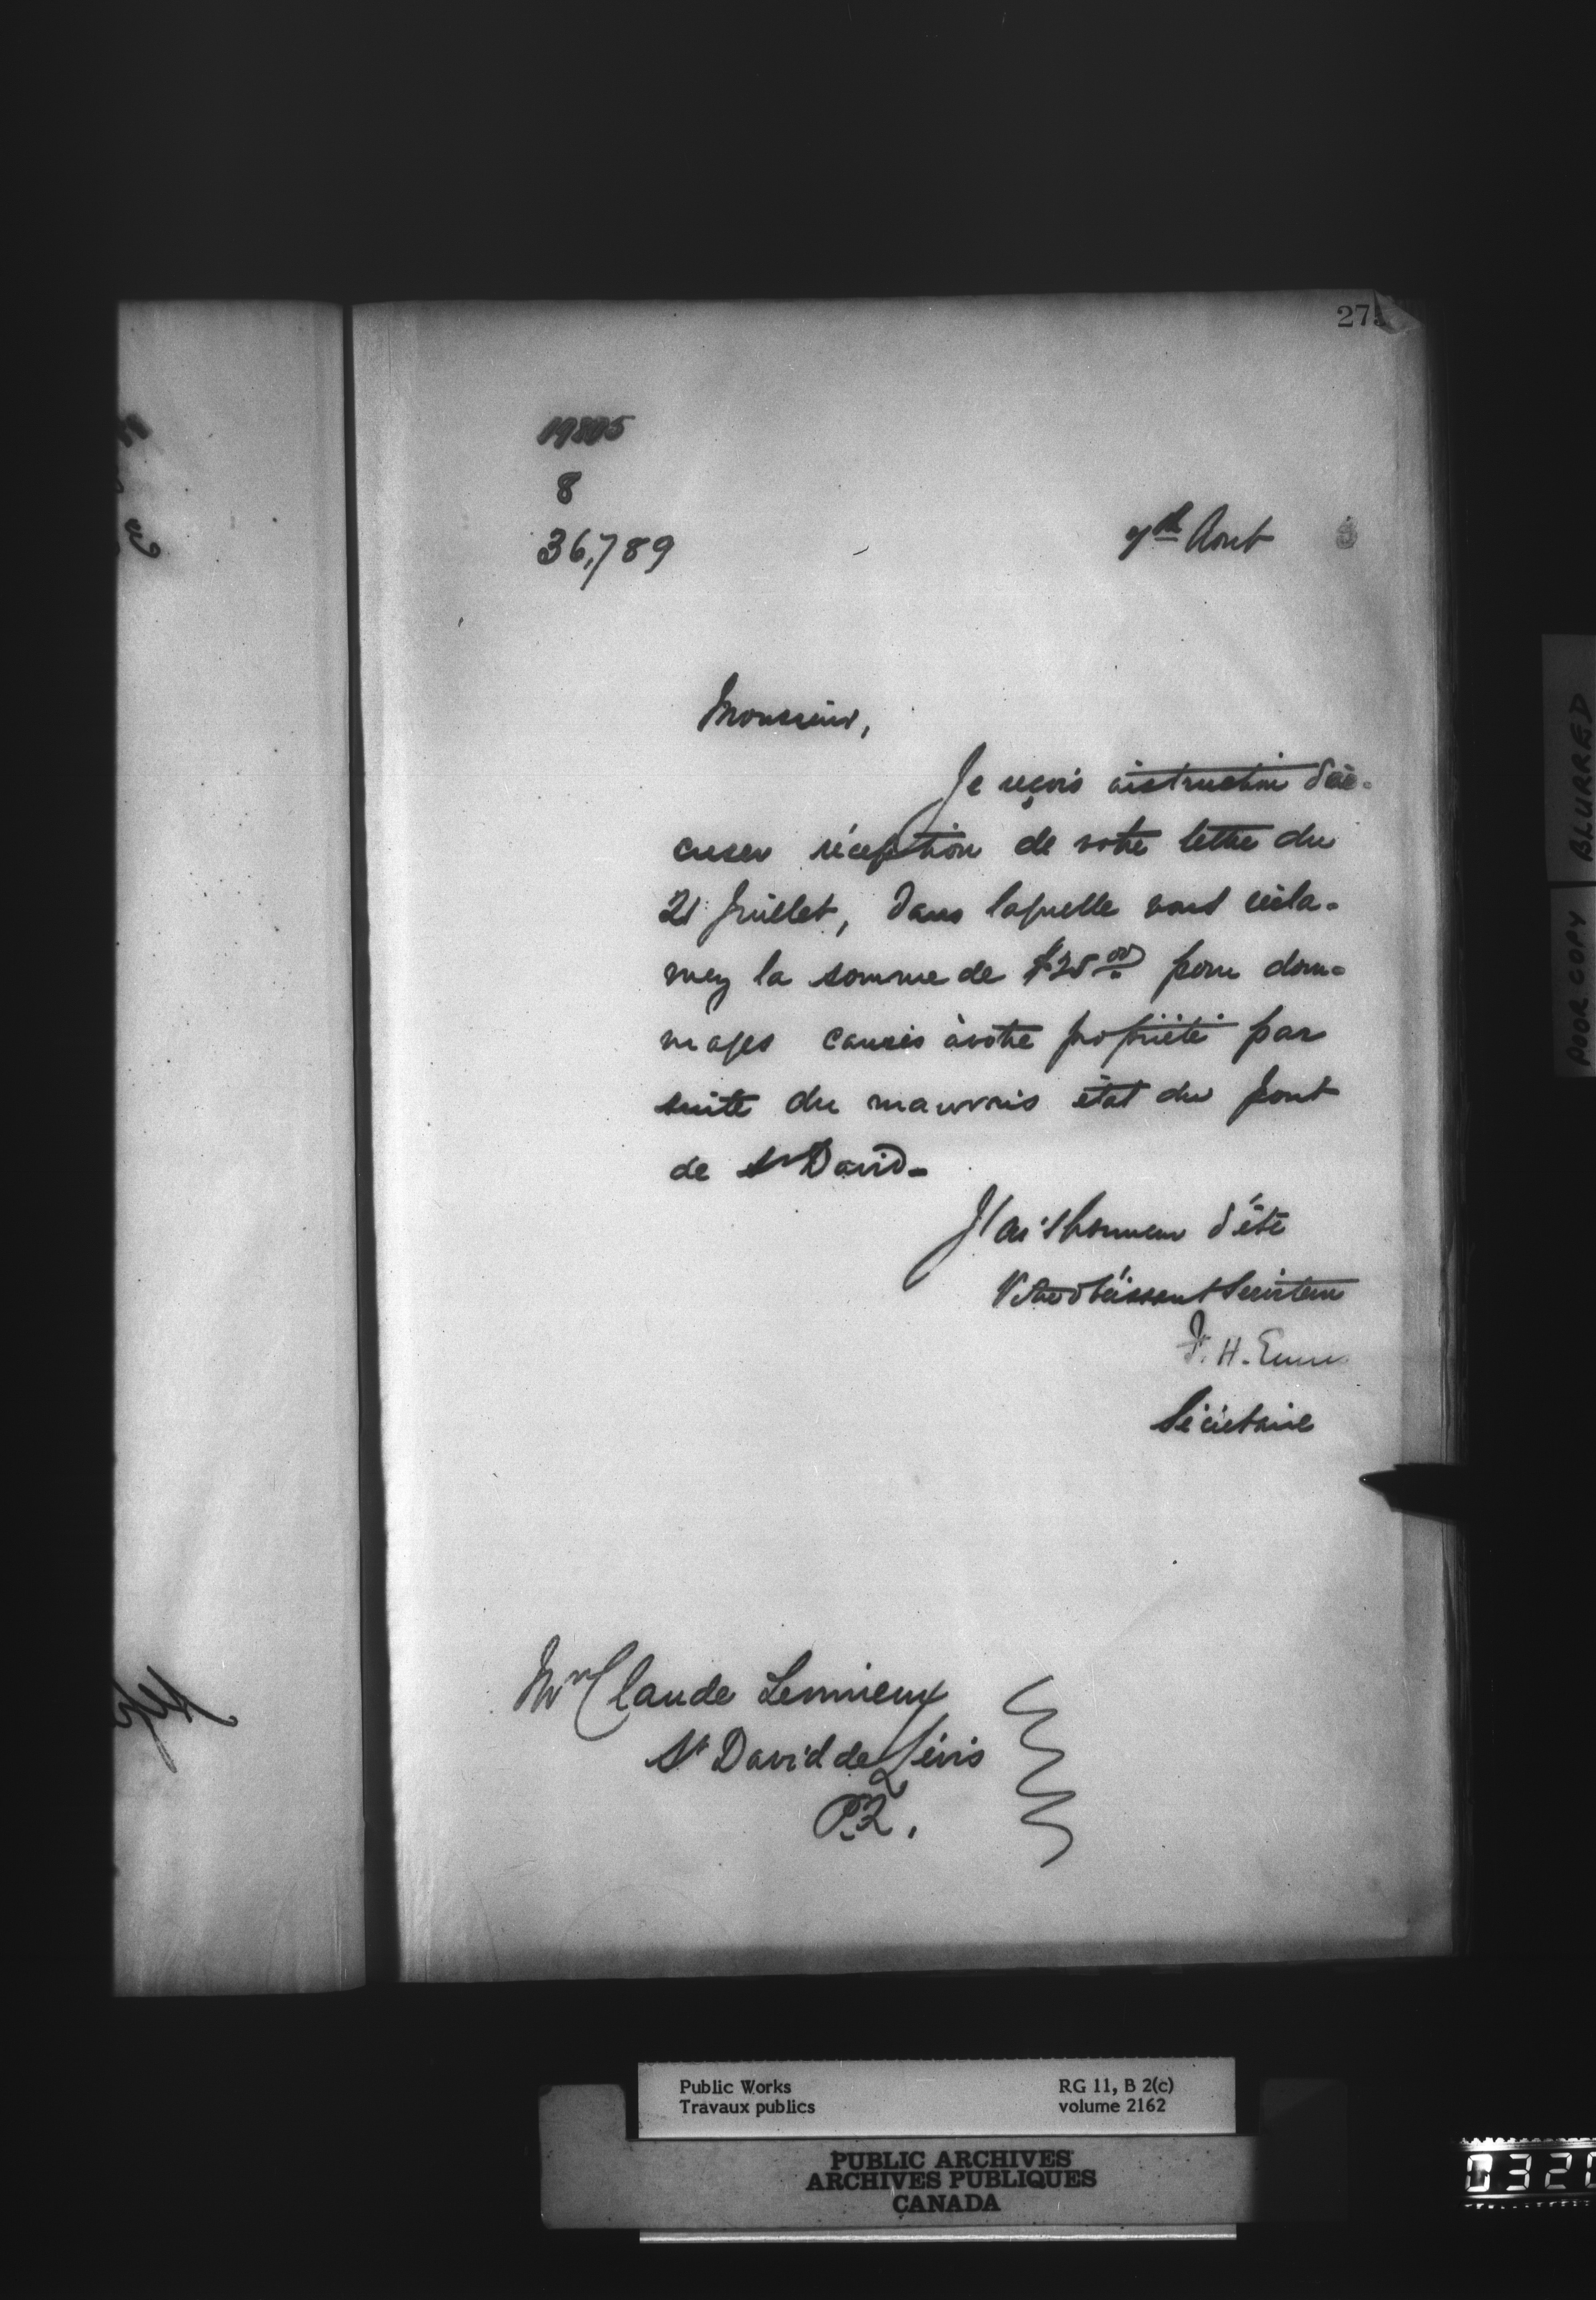 275
19805
8
36,789
Août 3
Monsieur,
Je reçois instruction d'ac-
cuser réception de votre lettre du
21 Juillet, dans laquelle vous récla-
mez la somme de $25.00 pour dom-
mages causés à votre propriété par
suite du mauvais état du pont
de St David.
J'ai l'honneur d'être
Votre obéissant Serviteur
F. H. Ennis
Secrétaire
Mr Claude Lemieux
St David de Lévis
P.Q.
POOR COPY BLURRED
Public Works RG 11, B 2(c)
Travaux publics volume 2162
PUBLIC ARCHIVES
ARCHIVES PUBLIQUES
CANADA
0320